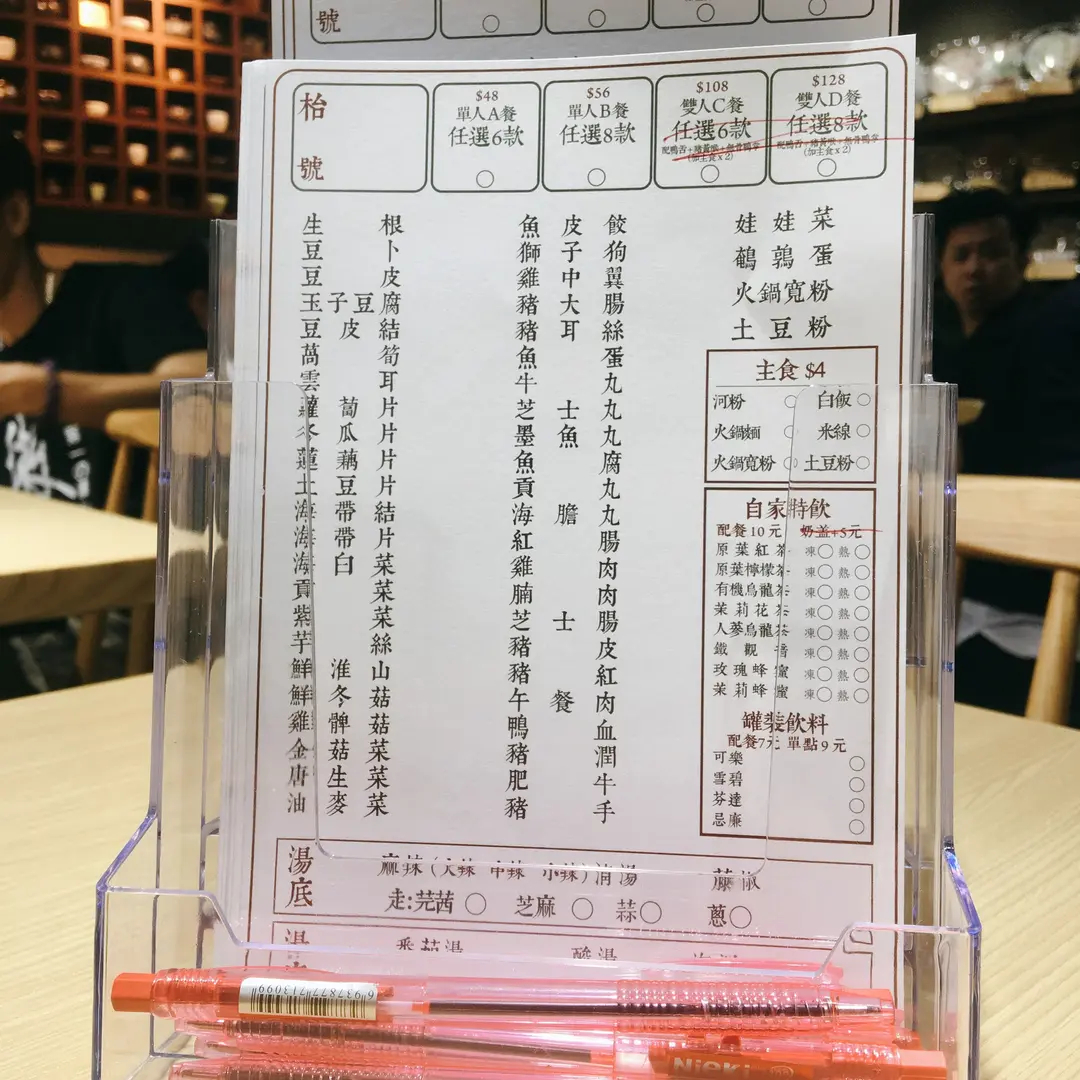 號
枱
號
$48
單人A餐
任選6款
$56
單人B餐
任選8款
$108
雙人C餐
任選6款
(加主食x2)
$128
雙人D餐
任選8款
(加主食x2)
生根
豆卜
豆皮
玉子豆腐
豆皮結
萵筍
雲耳
蘿蔔片
冬瓜片
蓮藕片
土豆片
海帶結
海帶片
海臼菜
貢菜
紫菜
芋絲
鮮淮山
鮮冬菇
雞髀菇
金菇菜
唐生菜
油麥菜
魚皮餃
獅子狗
雞中翼
豬大腸
豬耳絲
魚蛋
牛丸
芝士丸
墨魚丸
魚腐
貢丸
海膽丸
紅腸
雞肉
腩肉
芝士腸
豬皮
豬紅
午餐肉
鴨血
豬潤
肥牛
豬手
娃娃菜
鵪鶉蛋
火鍋寬粉
土豆粉
主食 $4
河粉 白飯
火鍋麵 米線
火鍋寬粉 土豆粉
自家特飲
配餐10元 奶盖+5元
原葉紅茶 凍 熱
原葉檸檬茶 凍 熱
有機烏龍茶 凍 熱
茉莉花茶 凍 熱
人蔘烏龍茶 凍 熱
鐵觀音 凍 熱
玫瑰蜂蜜 凍 熱
茉莉蜂蜜 凍 熱
罐裝飲料
配餐7元 單點9元
可樂
雪碧
芬達
忌廉
湯底
麻辣(大辣 中辣 小辣)清湯 藤椒
走:芫茜 芝麻 蒜 蔥
湯
番茄湯 酸湯
6937877713099